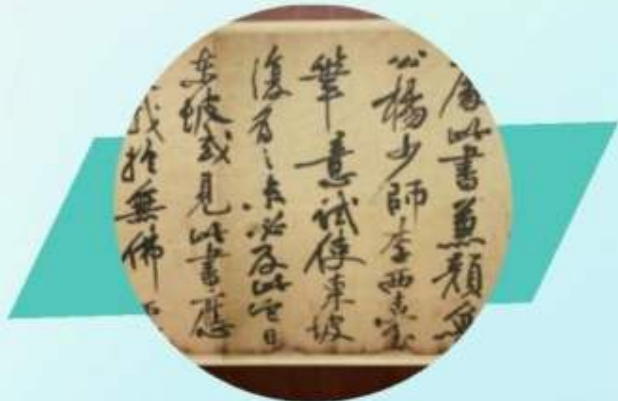 處此書兼顏魯
公楊少師李西臺
筆意試使東坡
復為之未必及此它日
東坡或見此書應
我於無佛